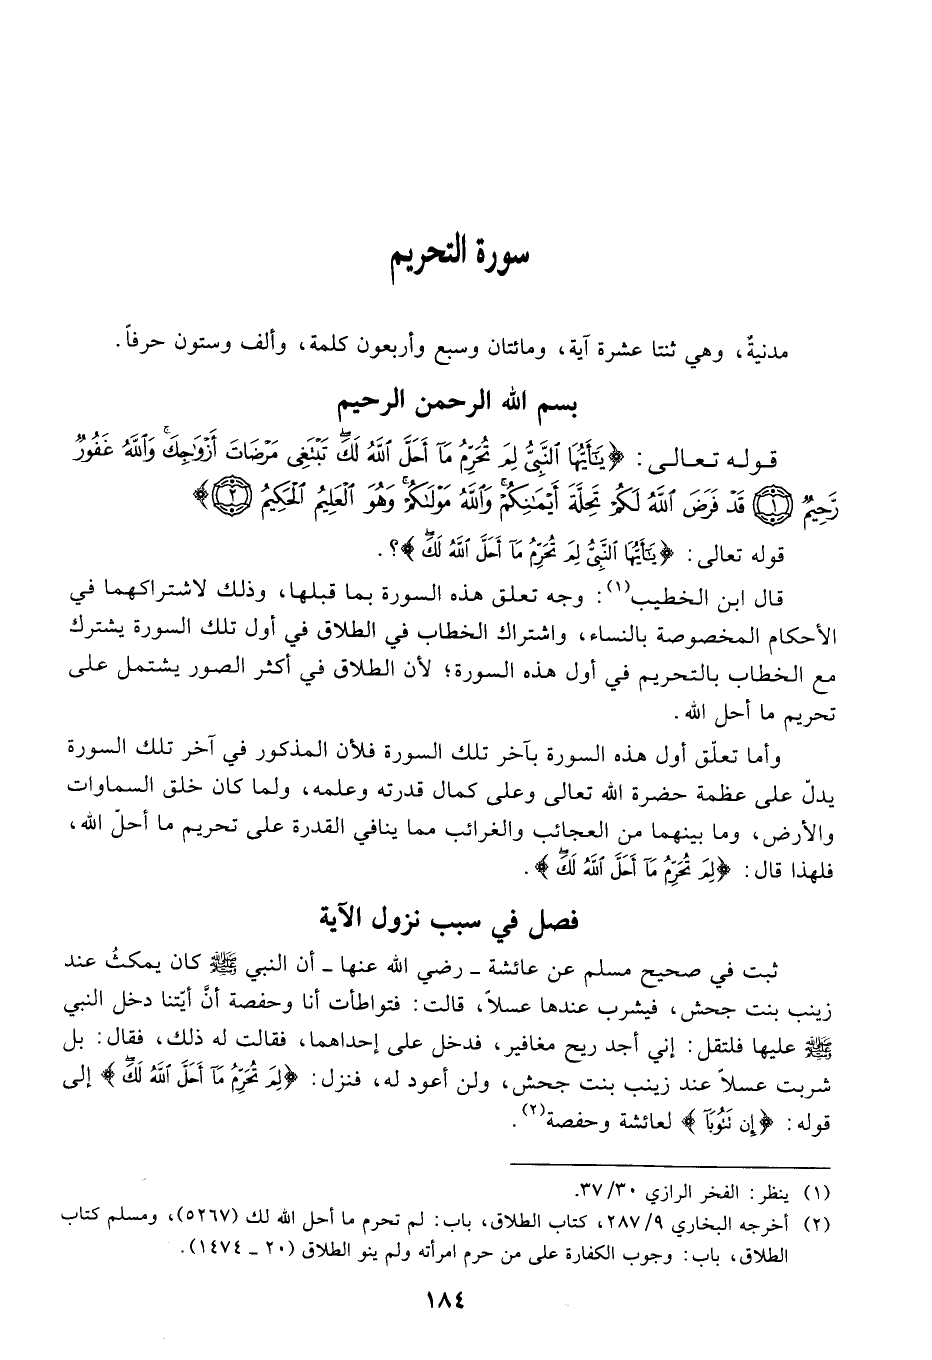 سورة التحريم
مدنيةٌ، وهي ثنتا عشرة آية، ومائتان وسبع وأربعون كلمة، وألف وستون حرفاً.
بسم الله الرحمن الرحيم
قوله تعالى: ﴿يَٰٓأَيُّهَا ٱلنَّبِيُّ لِمَ تُحَرِّمُ مَآ أَحَلَّ ٱللَّهُ لَكَۖ تَبْتَغِى مَرْضَاتَ أَزْوَٰجِكَۚ وَٱللَّهُ غَفُورٌ
رَّحِيمٌ ۝١ قَدْ فَرَضَ ٱللَّهُ لَكُمْ تَحِلَّةَ أَيْمَٰنِكُمْۚ وَٱللَّهُ مَوْلَىٰكُمْۖ وَهُوَ ٱلْعَلِيمُ ٱلْحَكِيمُ ۝٢﴾
قوله تعالى: ﴿يَٰٓأَيُّهَا ٱلنَّبِيُّ لِمَ تُحَرِّمُ مَآ أَحَلَّ ٱللَّهُ لَكَۖ﴾؟.
قال ابن الخطيب(١): وجه تعلق هذه السورة بما قبلها، وذلك لاشتراكهما في
الأحكام المخصوصة بالنساء، واشتراك الخطاب في الطلاق في أول تلك السورة يشترك
مع الخطاب بالتحريم في أول هذه السورة؛ لأن الطلاق في أكثر الصور يشتمل على
تحريم ما أحل الله.
وأما تعلّق أول هذه السورة بآخر تلك السورة فلأن المذكور في آخر تلك السورة
يدلّ على عظمة حضرة الله تعالى وعلى كمال قدرته وعلمه، ولما كان خلق السماوات
والأرض، وما بينهما من العجائب والغرائب مما ينافي القدرة على تحريم ما أحلّ الله،
فلهذا قال: ﴿لِمَ تُحَرِّمُ مَآ أَحَلَّ ٱللَّهُ لَكَۖ﴾.
فصل في سبب نزول الآية
ثبت في صحيح مسلم عن عائشة ـ رضي الله عنها ـ أن النبي ﷺ كان يمكثُ عند
زينب بنت جحش، فيشرب عندها عسلاً، قالت: فتواطأت أنا وحفصة أنَّ أيّتنا دخل النبي
ﷺ عليها فلتقل: إني أجد ريح مغافير، فدخل على إحداهما، فقالت له ذلك، فقال: بل
شربت عسلاً عند زينب بنت جحش، ولن أعود له، فنزل: ﴿لِمَ تُحَرِّمُ مَآ أَحَلَّ ٱللَّهُ لَكَۖ﴾ إلى
قوله: ﴿إِن تَتُوبَآ﴾ لعائشة وحفصة(٢).
(١) ينظر: الفخر الرازي ٣٠/ ٣٧.
(٢) أخرجه البخاري ٩/ ٢٨٧، كتاب الطلاق، باب: لم تحرم ما أحل الله لك (٥٢٦٧)، ومسلم كتاب
الطلاق، باب: وجوب الكفارة على من حرم امرأته ولم ينو الطلاق (٢٠ ـ ١٤٧٤).
١٨٤